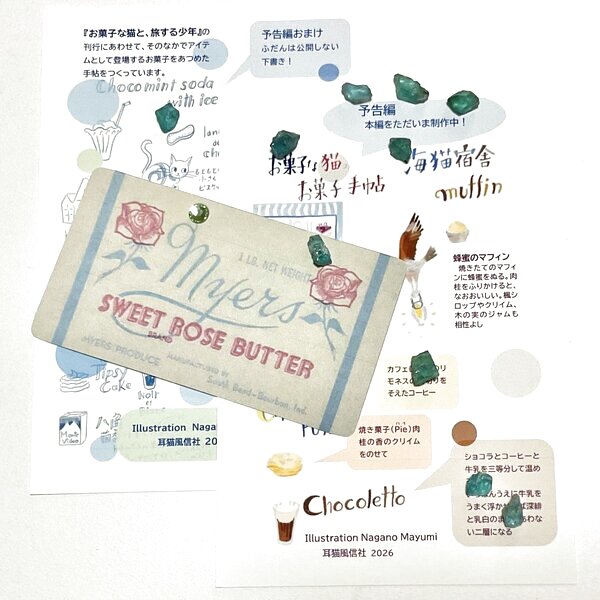 『お菓子な猫と、旅する少年』の
刊行にあわせて、そのなかでアイテ
ムとして登場するお菓子をあつめた
手帖をつくっています。
Chocomint soda
with ice
予告編おまけ
ふだんは公開しない
下書き！
予告編
本編をただいま制作中！
お菓子な猫の
お菓子手帖
海猫宿舎
muffin
蜂蜜のマフィン
焼きたてのマフィ
ンに蜂蜜をぬる。肉
桂をふりかけると、
なおおいしい。楓シ
ロップやクリイム、
木の実のジャムも
相性よし
1 LB. NET WEIGHT
Myers
SWEET ROSE BUTTER
BRAND
MYERS PRODUCE
MANUFACTURED BY
South Bend-Bourbon, Ind.
Tipsy
Cake
Noir
et
Movie
Video
八角
Illustration Nagano
耳猫風信社 20
カフェ
モネス
そえたコーヒー
焼き菓子(Pie)肉
桂の香のクリイム
をのせて
ショコラとコーヒーと
牛乳を三等分して温め
うえに牛乳を
うまく浮か
と乳白の
い二層になる
Chocoletto
Illustration Nagano Mayumi
耳猫風信社 2026